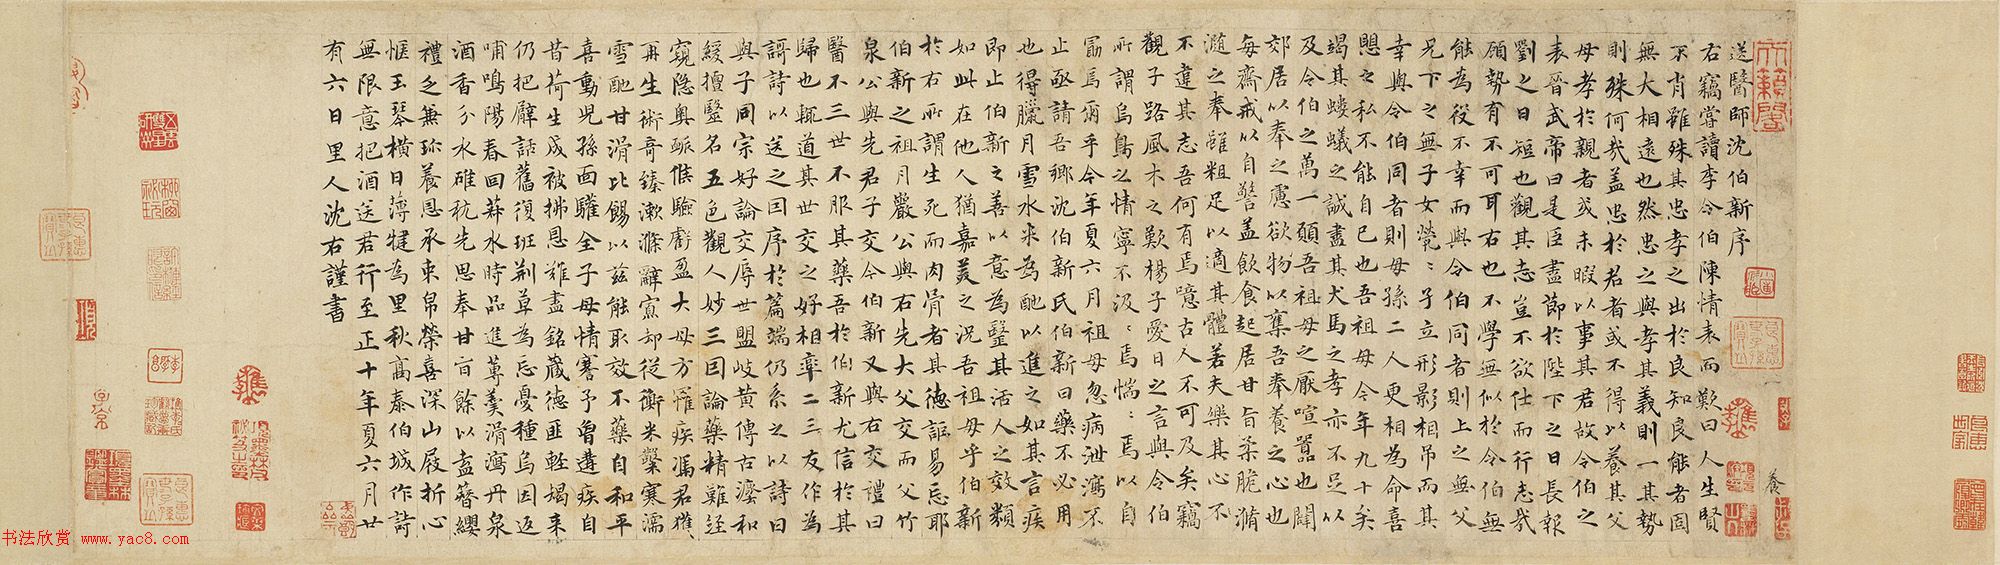 送醫師沈伯新序
右竊嘗讀李令伯陳情表而歎曰人生賢
不肖雖殊其忠孝之出於良知良能者固
無大相遠也然忠之與孝其義則一其勢
則殊何哉蓋忠於君者或不得以養其父
母孝於親者或未暇以事其君故令伯之
表晉武帝曰是臣盡節於陛下之日長報
劉之日短也觀其志豈不欲仕而行志哉
顧勢有不可耳右也不學無似於令伯無
能為役不幸而與令伯同者則上之無父
兄下之無子女煢〻孑立形影相吊而其
幸與令伯同者則母孫二人更相為命喜
懇之私不能自已也吾祖母今年九十矣
竭其螻蟻之誠盡其犬馬之孝亦不足以
及令伯之萬一顧吾祖母之厭喧囂也闢
郊居以奉之慮欲物以寨吾奉養之心也
每齋戒以自警蓋飲食起居甘旨柔脆滫
瀡之奉雖粗足以適其體若夫樂其心不
不違其志吾何有焉噫古人不可及矣竊
觀子路風木之歎楊子愛日之言與令伯
所謂烏鳥之情寧不汲〻焉惴〻焉以自
勗焉爾乎今年夏六月祖母忽病泄瀉不
止亟請吾鄉沈伯新氏伯新曰藥不必用
也得臘月雪水米為酏以進之如其言疾
即止伯新之善以意為醫其活人之效類
如此在他人猶嘉美之況吾祖母乎伯新
於右所謂生死而肉骨者其德詎易忘耶
伯新之祖月巖公與右先大父交而父竹
泉公與先君子交今伯新又與右交禮曰
醫不三世不服其藥吾於伯新尤信於其
歸也輒道其世交之好相率二三友作為
謌詩以送之因序於篇端仍系之以詩曰
與子同宗好論交厚世盟岐黃傳古瀿和
緩擅醫名五色觀人妙三因論藥精難經
窺隱奧脈候驗虧盈大母方罹疾馮君獲
再生術哥臻漱滌辭寫却從衡米檠寒濡
雪酏甘滑比餳以茲能取效不藥自和平
喜動兒孫面驩全子母情騫予魯遘疾自
昔荷生成被拂恩難盡銘藏德匪輕朅来
仍把臂話舊復班荊草為忘憂種烏因返
哺鳴陽春回莽水時品進蓴羹滑瀉丹泉
酒香分水碓秔先思奉甘旨餘以盍簪纓
禮乏兼珎養恩承束帛榮喜深山屐折心
愜玉琴橫日薄犍為里秋高泰伯城作詩
無限意把酒送君行至正十年夏六月廿
有六日里人沈右謹書
養
天籟閣
子京
书法欣赏 www.yac8.com